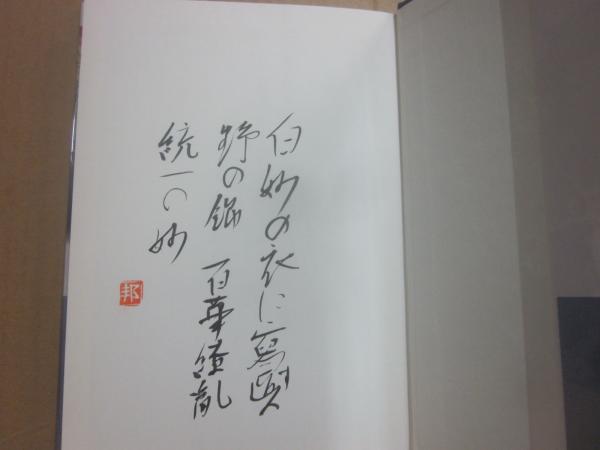 白妙の衣に寫
野の錦 百華繚亂
統一の妙
邦